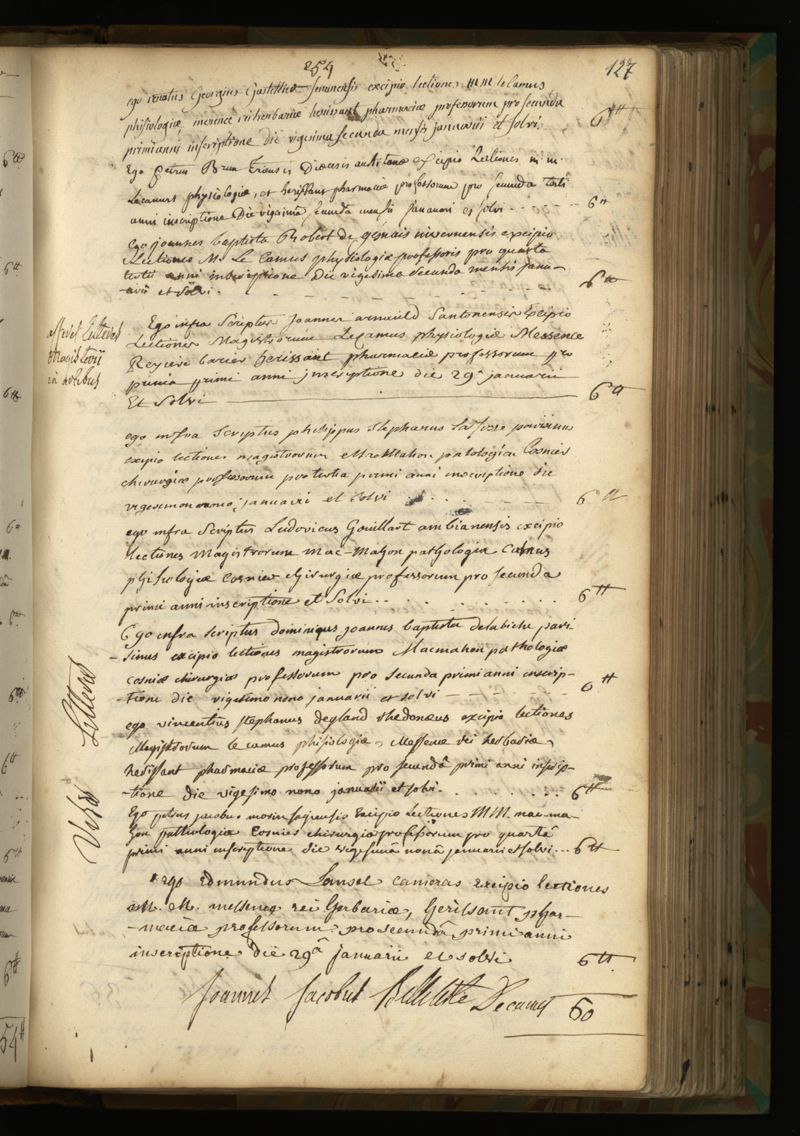 254
127
ego renatus Georgius excipio lectiones m m le Camus
phisiologiæ, messence rei herbariæ herissant pharmaciæ professorum pro secunda
primi anni inscriptione die vigesima secunda mensis januarii et solvi
6 tt
Ego Petrus Brun Diœcesis excipio Lectiones m m.
Lecamus physiologiæ, et herissant pharmaciæ professorum pro secunda tertii
anni inscriptione Die vigesima secunda mensis januarii et solvi
6 tt
Ego joannes baptista Robert de nivernensis excipio
Lectiones M. Le Camus physiologiæ professoris pro quarta
tertii anni inscriptione Die vigesima secunda mensis janu-
-arii et solvi.
6 tt
Litteras
Magisterii
in Artibus
Ego infra Scriptus Joannes arnauld Santonensis Excipio
Lectiones Magistrorum Lecamus physiologiæ Messence
Rei herissant pharmaciæ professorum pro
prima primi anni inscriptione die 29a januarii
Et Solvi
6 tt
ego infra scriptus philippus stephanus parisinus
excipio lectiones magistrorum patologiæ Cosnier
chirurgiæ professorum pro tertia primi anni inscriptione die
januarii et solvi
6 tt
ego infra Scriptus Ludovicus Gouillart ambianensis excipio
lectiones Magistrorum Mac-Mahon pathologiæ Camus
phisiologiæ Cosnier chirurgiæ professorum pro secunda
primi anni inscriptione et Solvi
6 tt
Ego infra scriptus dominicus joannes baptista delabiche pari
-sinus excipio lectiones magistrorum Macmahon pathologiæ
cosnier chirurgiæ professorum pro secunda primi anni inscrip-
-tione die vigesimo nono januarii et solvi
6 tt
Vidi Litteras
ego vincentius stephanus degland rhedonæus excipio lectiones
Magistrorum le camus phisiologiæ, Messence rei herbariæ,
herissant pharmaciæ professorum pro secundâ primi anni inscrip-
-tione die vigesimo nono januarii et solvi.
6 tt
Ego petrus jacobus morin excipio Lectiones MM mac ma
hon pathologiæ Cosnier chirurgiæ professorum pro quartâ
primi anni inscriptione die vigesimâ nonâ januarii et solvi...
6 tt
Ego Edmundus Lansel excipio lectiones
M. M. messence rei herbariæ, herissant phar-
-maciæ professorum pro secundâ primi anni
inscriptione die 29â januarii et solvi
6 tt
Joannes Jacobus Belleteste Decanus
60